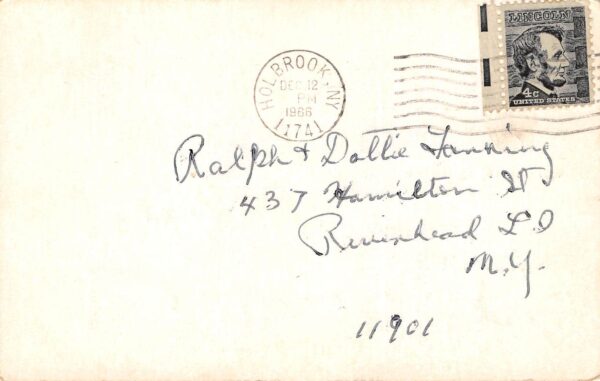 LINCOLN
4c
UNITED STATES
HOLBROOK, NY
DEC 12
PM
1966
11741
Ralph & Dottie Fanning
437 Hamilton St
Riverhead L I
N.Y.
11901